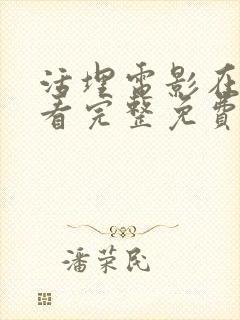 活埋雷影在
看完整免费
潘荣民